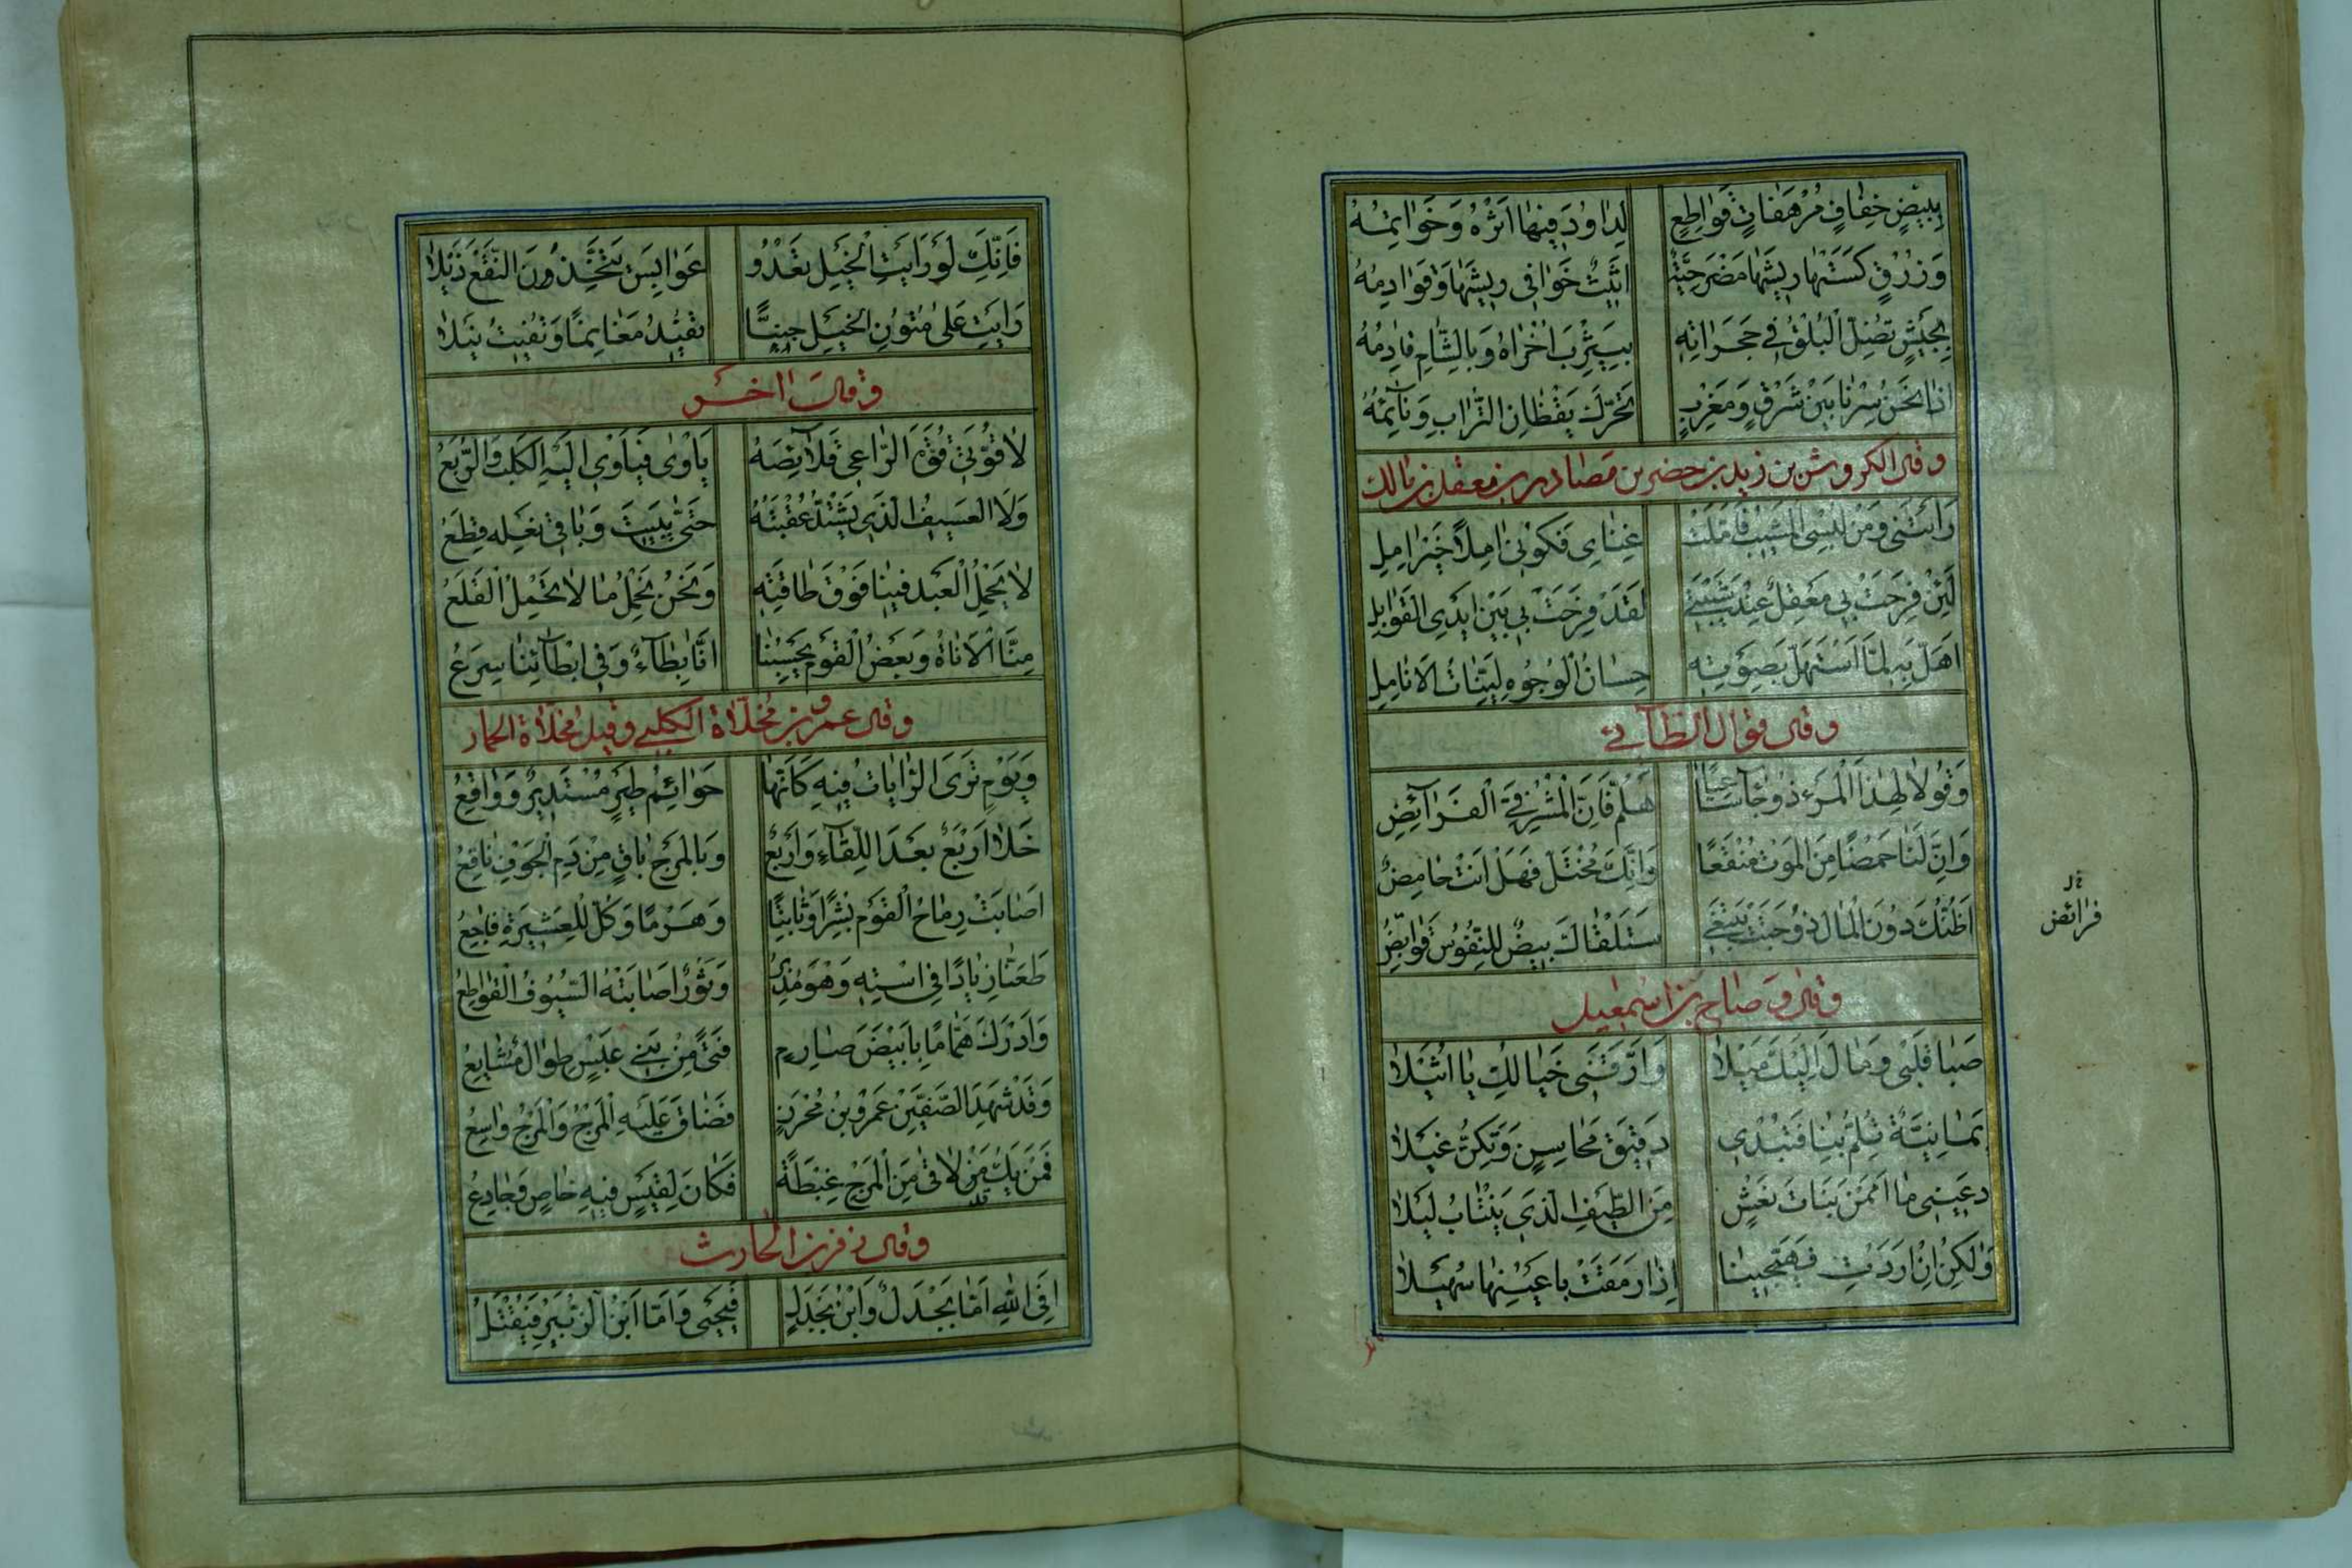 بِبِيضٍ خِفَافٍ مُرْهَفَاتٍ قَوَاطِعٍ لِدَاوُدَ فِيهَا اَثْرُهُ وَخَوَاتِمُهُ
وَزُرْقٍ كَسَتْهَا رِيشَهَا مَضْرَحِيَّةٌ اَثِيثٌ خَوَافِي رِيشِهَا وَقَوَادِمُهُ
بِجَيْشٍ تَضِلُّ الْبُلْقُ فِي حَجَرَاتِهِ بِيَثْرِبَ اُخْرَاهُ وَبِالشَّامِ قَادِمُهُ
اِذَا نَحْنُ سِرْنَا بَيْنَ شَرْقٍ وَمَغْرِبٍ تَحَرَّكَ يَقْظَانُ التُّرَابِ وَنَآئِمُهُ
وقال الكروش بن زيد بن حضر بن مصاد بن معقل بن مالك
رَاَتْنِي وَمِنْ لُبْسِي الْمَشِيبُ فَاَمَّلَتْ غِنَاىِ فَكُونِي اٰمِلًا خَيْرَ اٰمِلِ
لَئِنْ فَرِحَتْ بِي مَعْقِلٌ عِنْدَ شَيْبَتِي لَقَدْ فَرِحَتْ بِي بَيْنَ اَيْدِي الْقَوَابِلِ
اَهَلَّ بِهِ لَمَّا اسْتَهَلَّ بِصَوْتِهِ حِسَانُ الْوُجُوهِ لَيِّنَاتُ الْاَنَامِلِ
وقال قوال الطآئى
وَقُولَا لِهٰذَا الْمَرْءِ ذُو جَآءَ سَاعِيًا هَلُمَّ فَاِنَّ الْمَشْرَفِيَّ الْفَرَآئِضُ
وَاِنَّ لَنَا حَمْضًا مِنَ الْمَوْتِ مُنْقَعًا وَاِنَّكَ مُخْتَلٌّ فَهَلْ اَنْتَ حَامِضٌ
اَظُنُّكَ دُونَ الْمَالِ ذُو جِئْتَ تَبْتَغِي سَتَلْقَاكَ بِيضٌ لِلنُّفُوسِ قَوَابِضُ
فرائض
وقال وضاح بن اسمعيل
صَبَا قَلْبِي وَمَالَ اِلَيْكَ مَيْلَا وَاَرَّقَنِي خَيَالُكِ يَا اُثَيْلَا
يَمَانِيَّةٌ تُلِمُّ بِنَا فَتُبْدِي دَقِيقَ مَحَاسِنٍ وَتُكِنُّ غَيْلَا
دَعِينِي مَا اَمَمْنَ بَنَاتَ نَعْشٍ مِنَ الطَّيْفِ الَّذِي يَنْتَابُ لَيْلَا
وَلٰكِنْ اِنْ اَرَدْتِ فَهَيِّجِينَا اِذَا رَمَقَتْ بِاَعْيُنِهَا سُهَيْلَا
فَاِنَّكِ لَوْ رَاَيْتِ الْخَيْلَ تَعْدُو عَوَابِسَ يَتَّخِذْنَ النَّقْعَ ذَيْلَا
رَاَيْتِ عَلَى مُتُونِ الْخَيْلِ جِنًّا تُفِيدُ مَغَانِمًا وَتُفِيتُ نَيْلَا
وقال اخر
لَا قُوَّتِي قُوَّةُ الرَّاعِي قَلَآئِصَهُ يَاْوِي فَيَاْوِي اِلَيْهِ الْكَلْبُ وَالرُّبَعُ
وَلَا الْعَسِيفُ الَّذِي يَشْتَدُّ عُقْبَتُهُ حَتَّى يَبِيتَ وَبَاقِي نَعْلِهِ قِطَعُ
لَا يَحْمِلُ الْعَبْدُ فِينَا فَوْقَ طَاقَتِهِ وَنَحْنُ نَحْمِلُ مَا لَا تَحْمِلُ الْقَلَعُ
مِنَّا الْاَنَاةُ وَبَعْضُ الْقَوْمِ يَحْسِبُنَا اَنَّا بِطَآءٌ وَفِي اِبْطَآئِنَا سِرَعُ
وقال عمرو بن مخلاة الكلبى وقيل مخلاة الحمار
وَيَوْمٍ تَرَى الرَّايَاتِ فِيهِ كَاَنَّهَا حَوَائِمُ طَيْرٍ مُسْتَدِيرٌ وَوَاقِعُ
خَلَا اَرْبَعٌ بَعْدَ اللِّقَآءِ وَاَرْبَعٌ وَبِالْمَرْجِ بَاقٍ مِنْ دَمِ الْجَوْفِ نَاقِعُ
اَصَابَتْ رِمَاحُ الْقَوْمِ بِشْرًا وَثَابِتًا وَهَزْمًا وَكُلٌّ لِلْعَشِيرَةِ فَاجِعُ
طَعَنَّا زِيَادًا فِي اسْتِهِ وَهْوَ مُدْبِرٌ وَثَوْرًا اَصَابَتْهُ السُّيُوفُ الْقَوَاطِعُ
وَاَدْرَكَ هَمَّامًا بِاَبْيَضَ صَارِمٍ فَتًى مِنْ بَنِي عَبْسٍ طِوَالٌ مُشَايِعُ
وَقَدْ شَهِدَ الصَّفَّيْنِ عَمْرُو بْنُ مُحْرِزٍ فَضَاقَ عَلَيْهِ الْمَرْجُ وَالْمَرْجُ وَاسِعُ
فَمَنْ يَكُ مَنْ لَاقَى مِنَ الْمَرْجِ غِبْطَةً فَكَانَ لِقَيْسٍ فِيهِ خَاصٍ وَجَادِعُ
وقال زفر بن الحارث
اَفِي اللّٰهِ اَمَّا بَحْدَلٌ وَابْنُ بَحْدَلٍ فَيَحْيَى وَاَمَّا ابْنُ الزُّبَيْرِ فَيُقْتَلُ